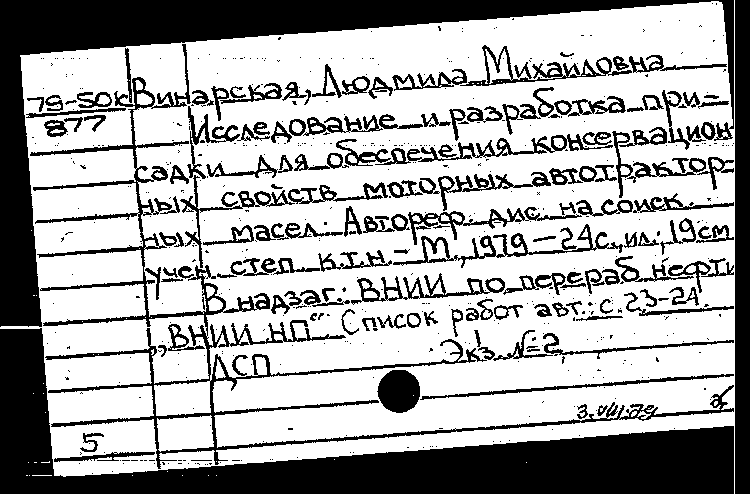 79-50к Винарская, Людмила Михайловна
877 Исследование и разработка при=
садки для обеспечения консервацион
ных свойств моторных автотрактор-
ных масел: Автореф. дис. на соиск.
учен. степ. к.т.н. - М., 1979 - 24с., ил.; 19см
В надзаг.: ВНИИ по перераб нефти
„ВНИИ НП“. Список работ авт.: с. 23-24.
ДСП Экз. №=2
3.VIII.79
5